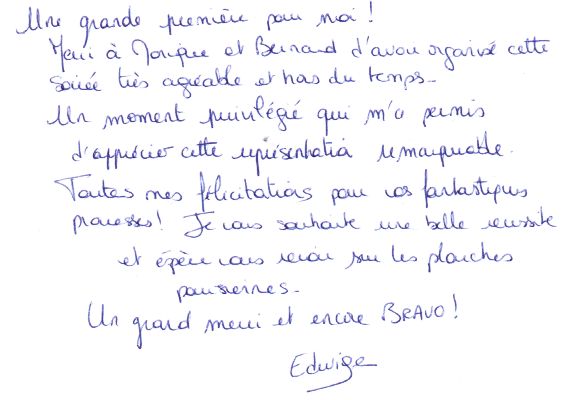 Une grande première pour moi !
Merci à Monique et Bernard d'avoir organisé cette
soirée très agréable et hors du temps.
Un moment privilégié qui m'a permis
d'apprécier cette représentation remarquable.
Toutes mes félicitations pour vos fantastiques
prouesses ! Je vous souhaite une belle réussite
et espère vous revoir sur les planches
parisiennes.
Un grand merci et encore BRAVO !
Edwige